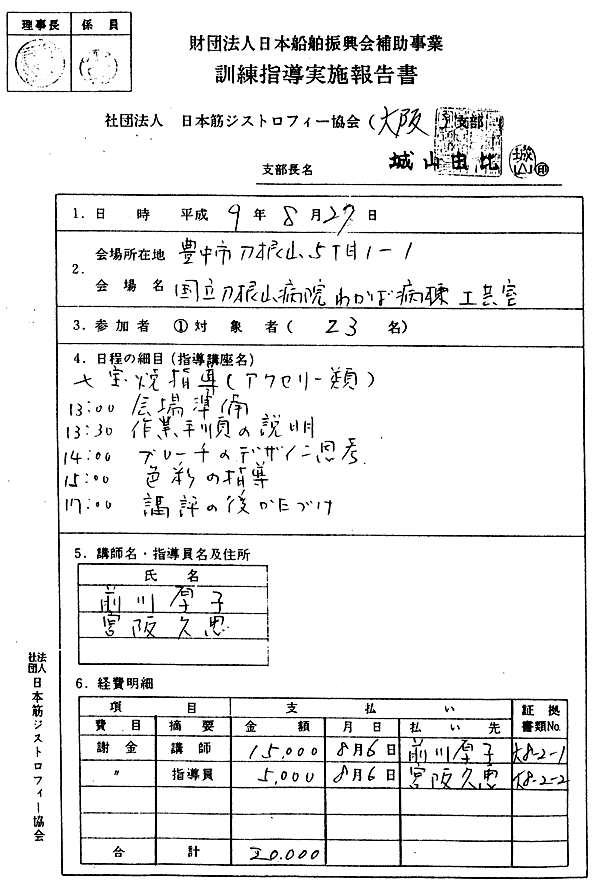 理事長 係員
財団法人日本船舶振興会補助事業
訓練指導実施報告書
社団法人 日本筋ジストロフィー協会(大阪)支部
支部長名 城山由比 城山 印
1.日 時 平成 9 年 8 月 27 日
2.
会場所在地 豊中市刀根山5丁目1-1
会場名 国立刀根山病院わかば病棟工芸室
3.参加者 ①対象者( 23 名)
4.日程の細目(指導講座名)
七宝焼指導(アクセリー類)
13:00 会場準備
13:30 作業手順の説明
14:00 ブローチのデザイン思考
15:00 色彩の指導
17:00 講評の後かたづけ
5.講師名・指導員名及住所
氏 名
前川厚子
宮阪久恵
6.経費明細
項 目 支 払 い 証拠書類No.
費 目 摘 要 金 額 月 日 払 い 先
謝 金 講 師 15,000 8月6日 前川厚子 大8-2-1
〃 指導員 5,000 8月6日 宮阪久恵 大8-2-2
合 計 20,000
社団法人日本筋ジストロフィー協会